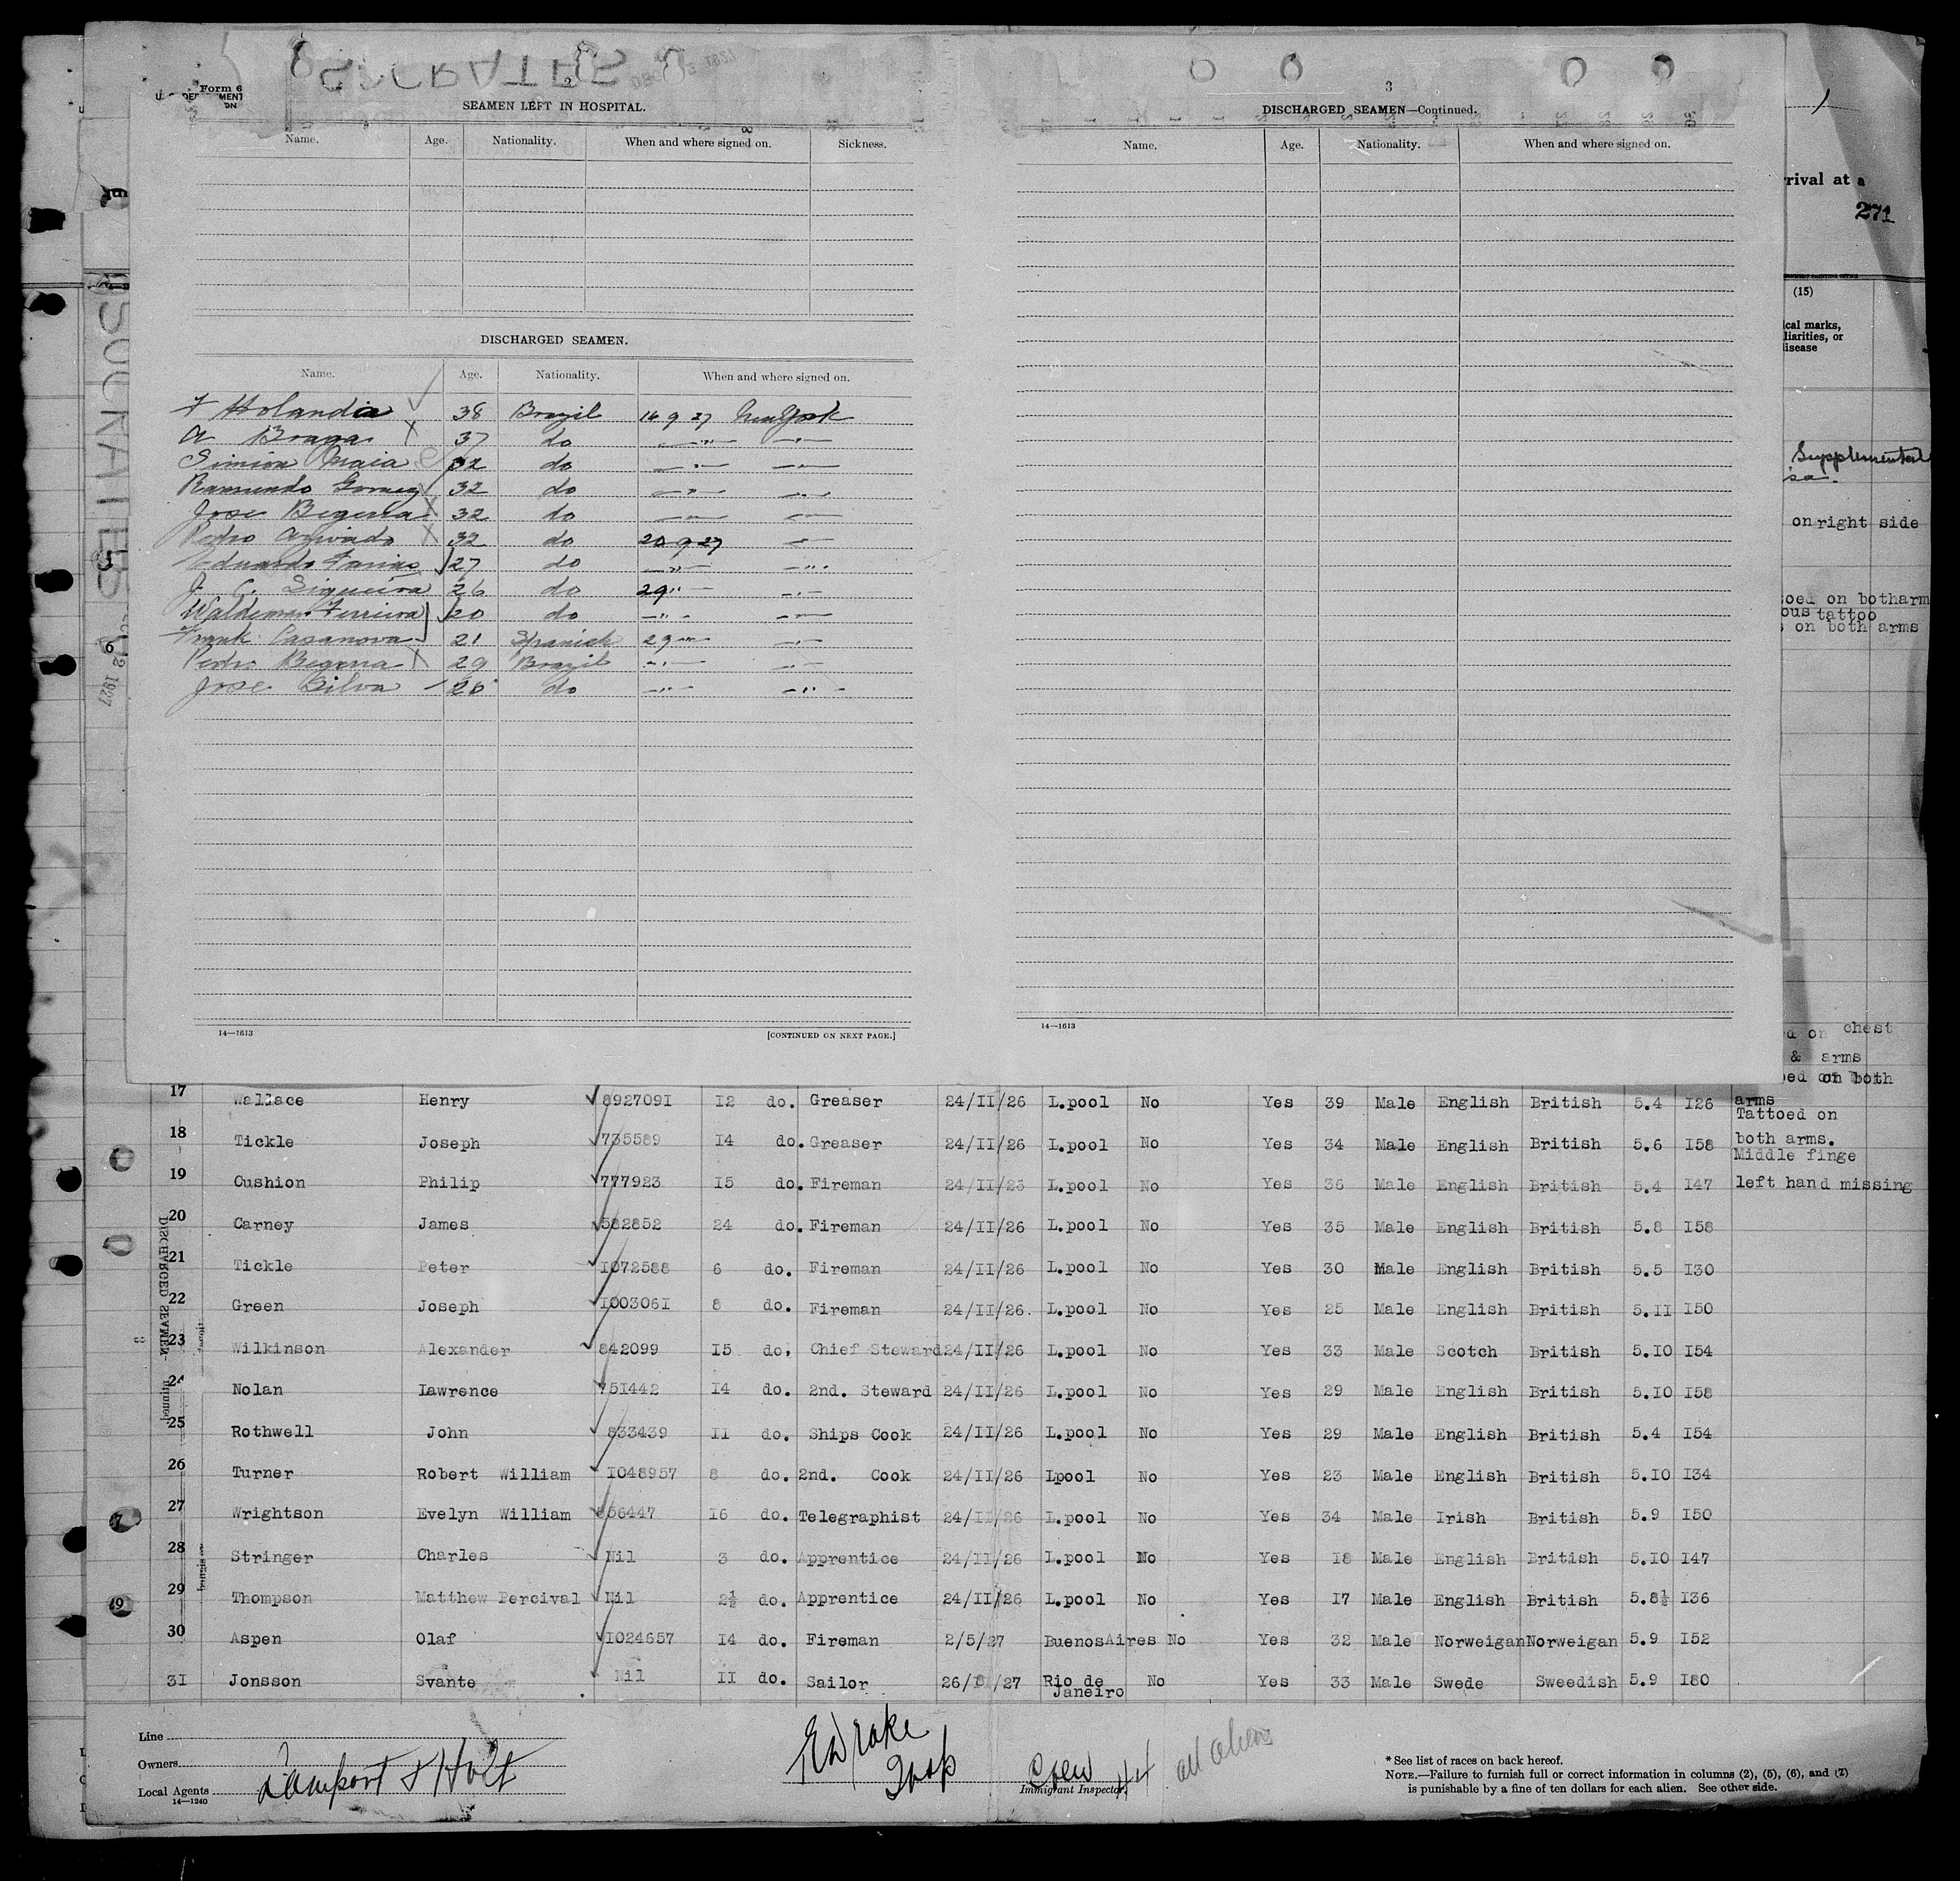 SOCRATES
Form 6
2
SEAMEN LEFT IN HOSPITAL.
Name. Age. Nationality. When and where signed on. Sickness.
DISCHARGED SEAMEN.
Name. Age. Nationality. When and where signed on.
F Holandia 38 Brazil 14 9 27 New York
A Braga X 37 do —"— —"—
Simion Maia 32 do —"— —"—
Ramundo Gomez 32 do —"— —"—
Jose Begerra X 32 do —"— —"—
Pedro X 32 do 20 9 27 —"—
Eduardo Farias 27 do —"— —"—
J. C. Siqueira 26 do 29 "— —"—
Waldemar Ferreira 20 do —"— —"—
Frank Casanova 21 Spanish 29 "— —"—
Pedro Begerra X 29 Brazil —"— —"—
Jose Silva 26 do —"— —"—
14—1613
[CONTINUED ON NEXT PAGE.]
3
DISCHARGED SEAMEN—Continued.
Name. Age. Nationality. When and where signed on.
14—1613
rival at a
271
(15)
ical marks,
liarities, or
disease
Supplemental
on right side
oed on botharm
ous tattoo
on both arms
chest
& arms
on both
SOCRATES
1927
DISCHARGED SEAMEN
17 Wallace Henry 8927091 12 do. Greaser 24/II/26 L.pool No Yes 39 Male English British 5.4 I26 arms
Tattoed on
18 Tickle Joseph 735589 14 do. Greaser 24/II/26 L.pool No Yes 34 Male English British 5.6 I58 both arms.
Middle finge
19 Cushion Philip 777923 I5 do. Fireman 24/II/26 L.pool No Yes 36 Male English British 5.4 I47 left hand missing
20 Carney James 582852 24 do. Fireman 24/II/26 L.pool No Yes 35 Male English British 5.8 I58
21 Tickle Peter I072588 6 do. Fireman 24/II/26 L.pool No Yes 30 Male English British 5.5 I30
22 Green Joseph I003061 8 do. Fireman 24/II/26. L.pool No Yes 25 Male English British 5.II I50
23 Wilkinson Alexander 842099 I5 do. Chief Steward 24/II/26 L.pool No Yes 33 Male Scotch British 5.IO I54
24 Nolan Lawrence 751442 I4 do. 2nd. Steward 24/II/26 L.pool No Yes 29 Male English British 5.IO I58
25 Rothwell John 833439 II do. Ships Cook 24/II/26 L.pool No Yes 29 Male English British 5.4 I54
26 Turner Robert William I048957 8 do. 2nd. Cook 24/II/26 Lpool No Yes 23 Male English British 5.IO I34
27 Wrightson Evelyn William 856447 I6 do. Telegraphist 24/II/26 L.pool No Yes 34 Male Irish British 5.9 I50
28 Stringer Charles Nil 3 do. Apprentice 24/II/26 L.pool No Yes I8 Male English British 5.IO I47
29 Thompson Matthew Percival Nil 2½ do. Apprentice 24/II/26 L.pool No Yes I7 Male English British 5.8½ I36
30 Aspen Olaf I024657 I4 do. Fireman 2/5/27 BuenosAires No Yes 32 Male Norweigan Norweigan 5.9 I52
31 Jonsson Svante Nil II do. Sailor 26/8/27 Rio de Janeiro No Yes 33 Male Swede Sweedish 5.9 I80
Line
Owners
Local Agents Lamport & Holt
14—1240
E Drake
Crew 44 all aliens
Immigrant Inspector.
* See list of races on back hereof.
NOTE.—Failure to furnish full or correct information in columns (2), (5), (6), and (7)
is punishable by a fine of ten dollars for each alien. See other side.